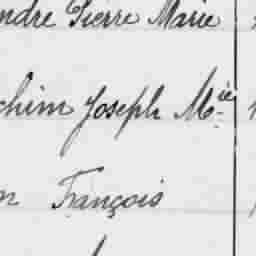 ndre Pierre Marie
chim Joseph M.ie
n François